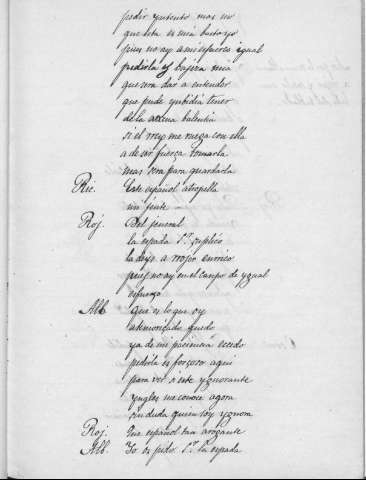 pedir yntento mas no
que esta es mia basta yo
pues no ay a mi esfuerzo igual
pedirla es bajeza mia
que sera dar a entender
que pude ynbidia tener
de la agena balentia
si el rrey me ruega con ella
a de ser fuerza tomarla
mas sera para guardarla
Ric. Este español atropella
un jente
Roj. Del jeneral
la espada Sr. suplico
la deys a rrojer enrrico
pues no ay en el canpo de ygual
esfuerzo
Alb. Que es lo que oy
atemoriçado quedo
ya de mi paciencia ecedo
pedirla es forçoso aqui
para ver si este ygnorante
yngles me conoce agora
sin duda quien soy ygnora
Roj. Que español tan arogante
Alb. Yo os pido Sr. la espada